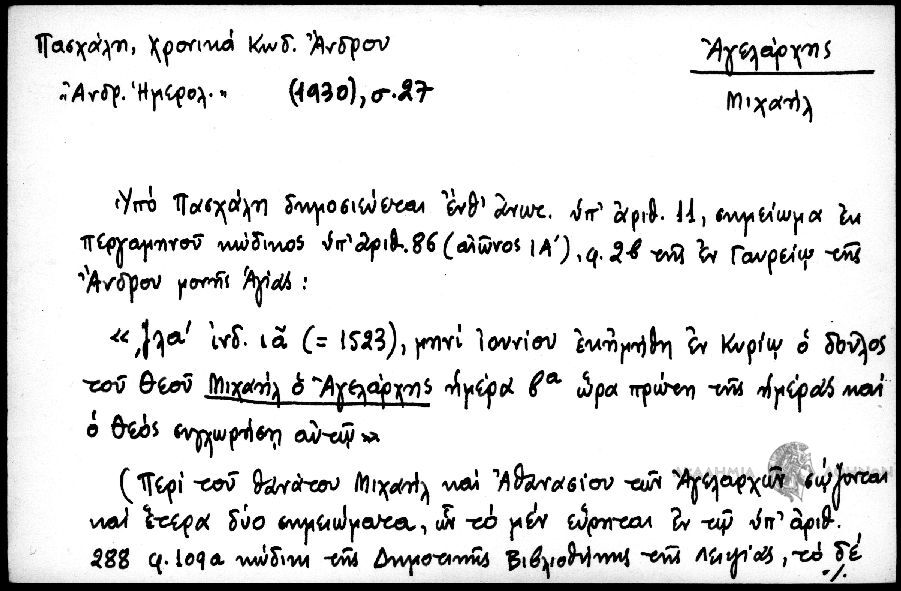 Πασχάλη, Χρονικά Κωδ. Ἄνδρου
"Ἀνδρ. Ἡμερολ." (1930), σ. 27
Ἀγελάρχης
Μιχαήλ
Ὑπό Πασχάλη δημοσιεύεται ἔνθ' ἀνωτ. ὑπ' ἀριθ. 11, σημείωμα ἐκ
περγαμηνοῦ κώδικος ὑπ' ἀριθ. 86 (αἰῶνος ΙΑ'), φ. 2β τῆς ἐν Γαυρείῳ τῆς
Ἄνδρου μονῆς Ἁγίας :
«͵ζλα' ἰνδ. ιᾶ (= 1523), μηνί Ἰουνίου ἐκημήθη ἐν Κυρίῳ ὁ δοῦλος
τοῦ Θεοῦ Μιχαήλ ὁ Ἀγελάρχης ἡμέρα βα ὥρα πρώτη τῆς ἡμέρας καί
ὁ Θεός συγχωρήσῃ αὐτῷ»
(Περί τοῦ θανάτου Μιχαήλ καί Ἀθανασίου τῶν Ἀγελαρχῶν σῴζονται
καί ἕτερα δύο σημειώματα, ὧν τό μέν εὕρηται ἐν τῷ ὑπ' ἀριθ.
288 φ. 109α κώδικι τῆς Δημοτικῆς Βιβλιοθήκης τῆς Λειψίας, τό δέ
·/.
ΑΚΑΔΗΜΙΑ ΑΘΗΝΩΝ